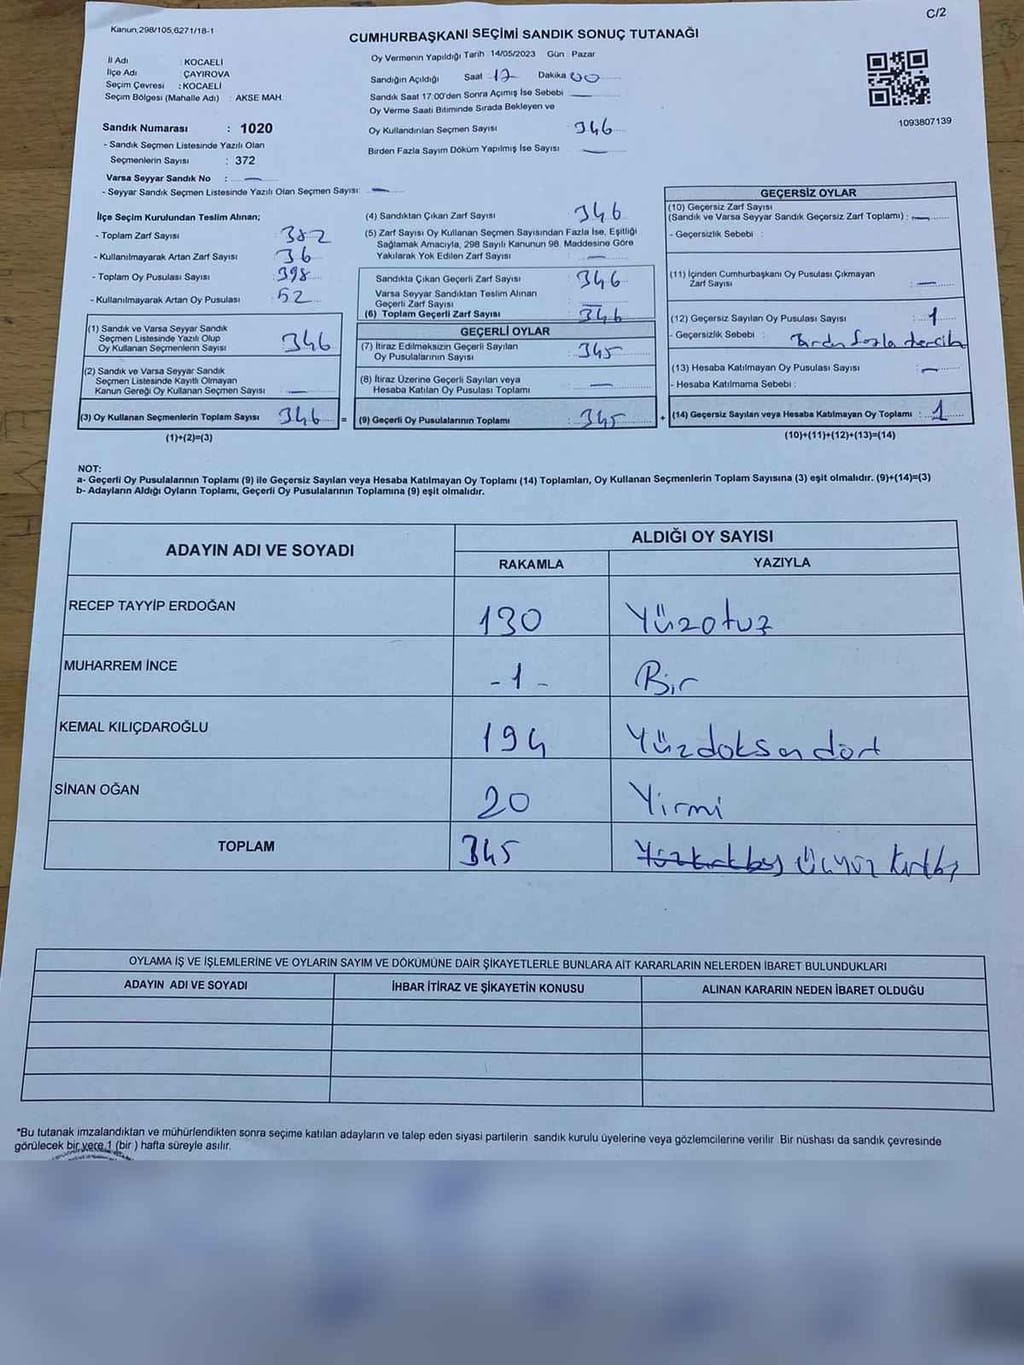 C/2
Kanun,298/105,6271/18-1
CUMHURBAŞKANI SEÇİMİ SANDIK SONUÇ TUTANAĞI
İl Adı : KOCAELİ
İlçe Adı : ÇAYIROVA
Seçim Çevresi : KOCAELİ
Seçim Bölgesi (Mahalle Adı) : AKSE MAH.
Sandık Numarası : 1020
- Sandık Seçmen Listesinde Yazılı Olan
Seçmenlerin Sayısı : 372
Varsa Seyyar Sandık No : —
- Seyyar Sandık Seçmen Listesinde Yazılı Olan Seçmen Sayısı: —
Oy Vermenin Yapıldığı Tarih : 14/05/2023 Gün : Pazar
Sandığın Açıldığı Saat 17 Dakika 00
Sandık Saat 17:00'den Sonra Açımış İse Sebebi —
Oy Verme Saati Bitiminde Sırada Bekleyen ve
Oy Kullandırılan Seçmen Sayısı 346
Birden Fazla Sayım Döküm Yapılmış İse Sayısı —
1093807139
İlçe Seçim Kurulundan Teslim Alınan;
- Toplam Zarf Sayısı : 382
- Kullanılmayarak Artan Zarf Sayısı : 36
- Toplam Oy Pusulası Sayısı : 398
- Kullanılmayarak Artan Oy Pusulası : 52
(1) Sandık ve Varsa Seyyar Sandık
Seçmen Listesinde Yazılı Olup
Oy Kullanan Seçmenlerin Sayısı : 346
(2) Sandık ve Varsa Seyyar Sandık
Seçmen Listesinde Kayıtlı Olmayan
Kanun Gereği Oy Kullanan Seçmen Sayısı : —
(3) Oy Kullanan Seçmenlerin Toplam Sayısı : 346 =
(1)+(2)=(3)
(4) Sandıktan Çıkan Zarf Sayısı 346
(5) Zarf Sayısı Oy Kullanan Seçmen Sayısından Fazla İse, Eşitliği
Sağlamak Amacıyla, 298 Sayılı Kanunun 98. Maddesine Göre
Yakılarak Yok Edilen Zarf Sayısı : —
Sandıkta Çıkan Geçerli Zarf Sayısı : 346
Varsa Seyyar Sandıktan Teslim Alınan
Geçerli Zarf Sayısı : —
(6) Toplam Geçerli Zarf Sayısı : 346
GEÇERLİ OYLAR
(7) İtiraz Edilmeksizin Geçerli Sayılan
Oy Pusulalarının Sayısı : 345
(8) İtiraz Üzerine Geçerli Sayılan veya
Hesaba Katılan Oy Pusulası Toplamı : —
(9) Geçerli Oy Pusulalarının Toplamı : 345 +
GEÇERSİZ OYLAR
(10) Geçersiz Zarf Sayısı
(Sandık ve Varsa Seyyar Sandık Geçersiz Zarf Toplamı) : —
- Geçersizlik Sebebi :
(11) İçinden Cumhurbaşkanı Oy Pusulası Çıkmayan
Zarf Sayısı : —
(12) Geçersiz Sayılan Oy Pusulası Sayısı : 1
- Geçersizlik Sebebi : Birden fazla tercih
(13) Hesaba Katılmayan Oy Pusulası Sayısı : —
- Hesaba Katılmama Sebebi :
(14) Geçersiz Sayılan veya Hesaba Katılmayan Oy Toplamı : 1
(10)+(11)+(12)+(13)=(14)
NOT:
a- Geçerli Oy Pusulalarının Toplamı (9) ile Geçersiz Sayılan veya Hesaba Katılmayan Oy Toplamı (14) Toplamları, Oy Kullanan Seçmenlerin Toplam Sayısına (3) eşit olmalıdır. (9)+(14)=(3)
b- Adayların Aldığı Oyların Toplamı, Geçerli Oy Pusulalarının Toplamına (9) eşit olmalıdır.
ADAYIN ADI VE SOYADI
ALDIĞI OY SAYISI
RAKAMLA YAZIYLA
RECEP TAYYİP ERDOĞAN 130 Yüzotuz
MUHARREM İNCE - 1 - Bir
KEMAL KILIÇDAROĞLU 194 Yüzdoksandört
SİNAN OĞAN 20 Yirmi
TOPLAM 345 Yüzkırkbeş Üçyüz kırkbeş
OYLAMA İŞ VE İŞLEMLERİNE VE OYLARIN SAYIM VE DÖKÜMÜNE DAİR ŞİKAYETLERLE BUNLARA AİT KARARLARIN NELERDEN İBARET BULUNDUKLARI
ADAYIN ADI VE SOYADI İHBAR İTİRAZ VE ŞİKAYETİN KONUSU ALINAN KARARIN NEDEN İBARET OLDUĞU
*Bu tutanak imzalandıktan ve mühürlendikten sonra seçime katılan adayların ve talep eden siyasi partilerin sandık kurulu üyelerine veya gözlemcilerine verilir. Bir nüshası da sandık çevresinde
görülecek bir yere 1 (bir ) hafta süreyle asılır.